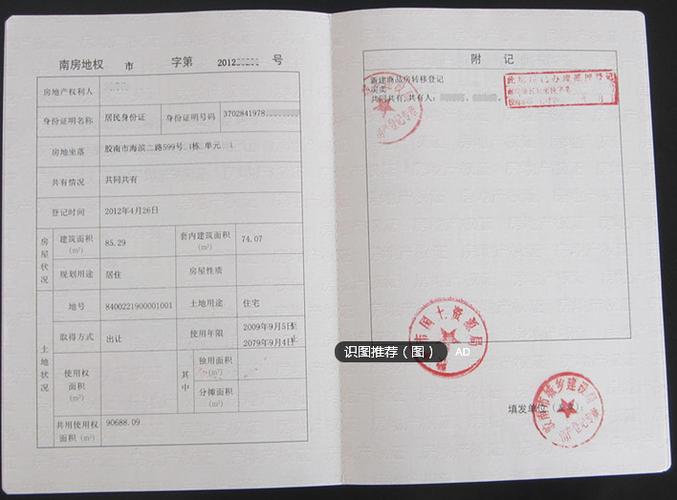 南房地权 市 字第 2012 号
房地产权利人
身份证明名称 居民身份证 身份证明号码 3702841978
房地坐落 胶南市海滨二路599号 1栋 单元 1
共有情况 共同共有
登记时间 2012年4月26日
房屋状况
建筑面积(m²) 85.29 套内建筑面积(m²) 74.07
规划用途 居住 房屋性质
土地状况
地号 8400221900001001 土地用途 住宅
取得方式 出让 使用年限 2009年9月5日至
2079年9月4日
使用权面积(m²) 其中 独用面积(m²)
分摊面积(m²)
共用使用权面积(m²) 90688.09
附记
新建商品房转移登记
房类
共同共有,共有人:
市国土资源局
识图推荐(图) AD
填发单位
胶南市城乡建设局